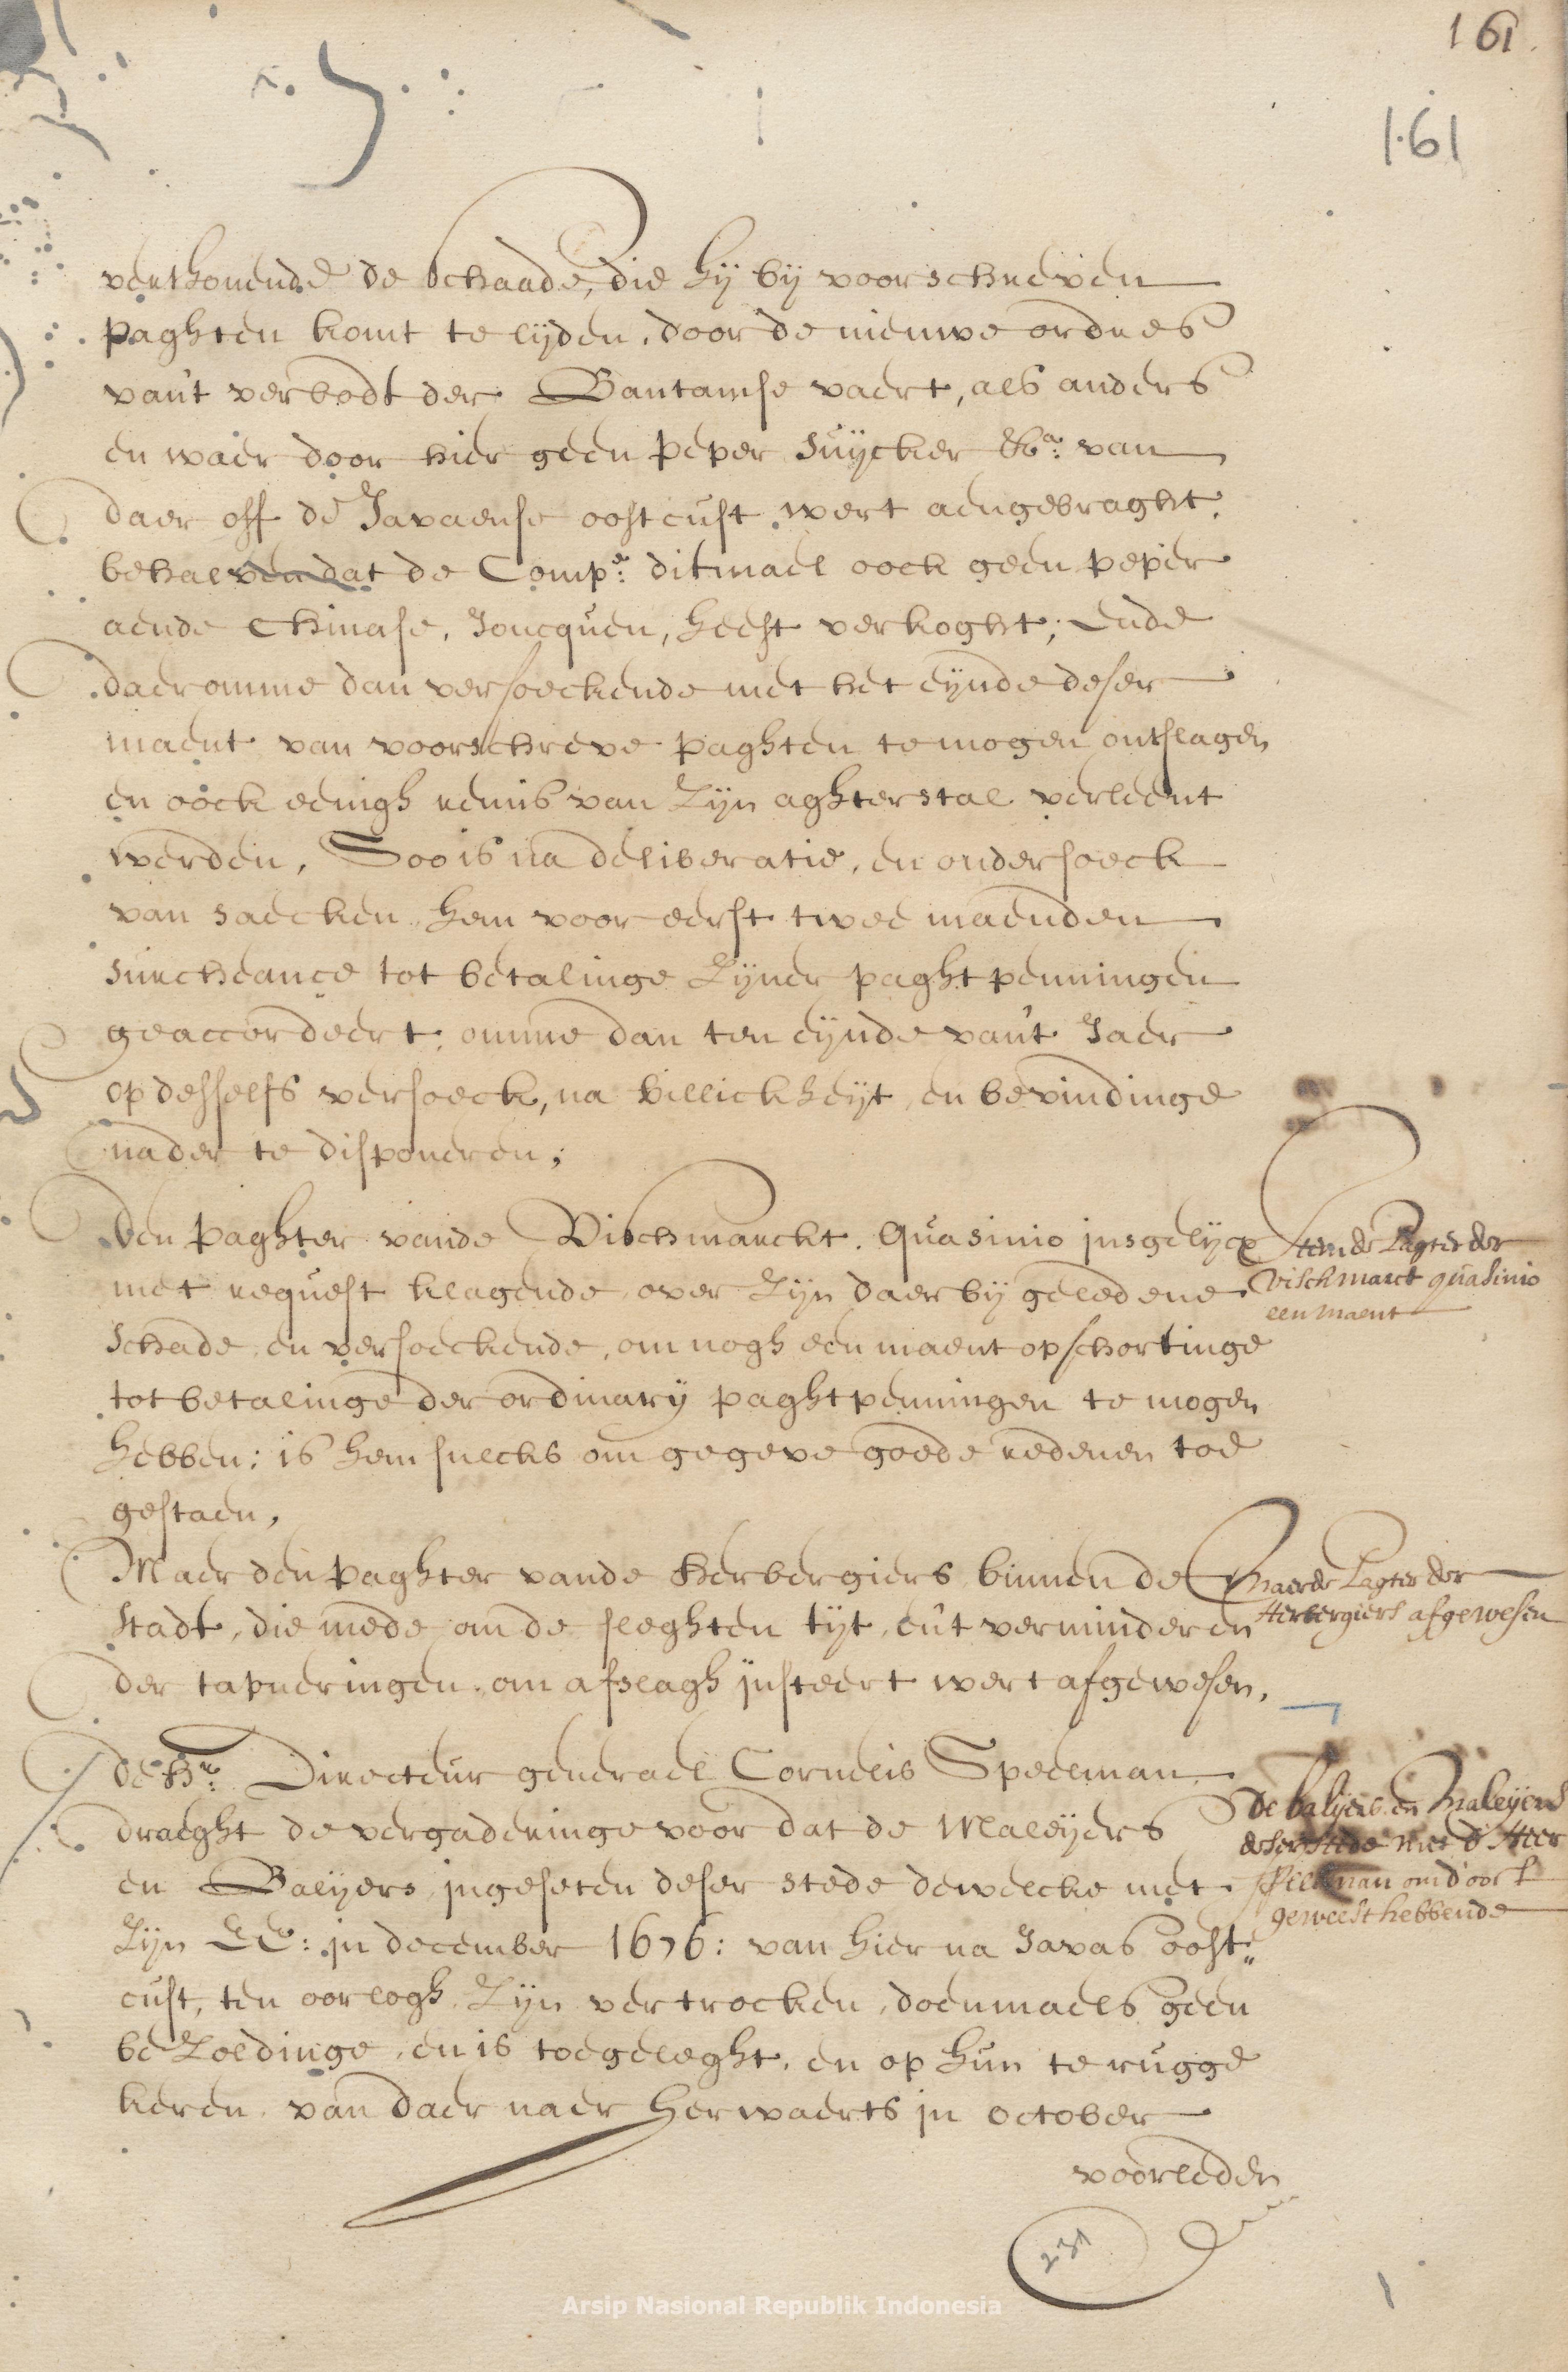 161.
161
verthonende de schaade, die hij bij voorschreven
paghten komt te lijden, door de nieuwe ordres
van't verbodt der Bantamse vaert, als anders
en waer door hier geen peper suijcker &a: van
daer off de Javaense oostcust wert aengebraght,
behalven dat de Compe: ditmael oock geen peper
aende Chinase, Joncquen, heeft verkoght; ende
daeromme dan versoeckende met het eijnde deser
maent van voorschreve paghten te mogen ontslagen
en oock eenigh remis van zijn aghterstal verleent
werden, Soo is na deliberatie, en ondersoeck
van saecken hem voor eerst twee maenden
surcheance tot betalinge zijner paght penningen
geaccordeert, omme dan ten eijnde van't Jaer
op desselfs versoeck, na billickheijt, en bevindinge
nader te disponeren;
Den paghter vande Vischmarckt. Quasinio insgelijcx
met request klagende over zijn daer bij geledene
schade en versoeckende, om nogh een maent opschortinge
tot betalinge der ordinarij paght penningen te mogen
hebben: is hem sulcks om gegeve goede redenen toe
gestaen,
Item de Pagter der
Vischmarct quasinio
een maent
Maer den paghter vande Herbergiers binnen de
stadt, die mede om de sleghten tijt, en't verminderen
der tapneringen, om afslagh insteert wert afgewesen,
Maer de Pagter der
Herbergiers afgewesen
De Hr: Directeur generael Cornelis Speelman
draeght de vergaderinge voor dat de Maleijers
en Balijers, ingeseten deser stede dewelcke met
zijn EE: in december 1676: van hier na Javas oost„
cust, ten oorlogh zijn vertrocken, doenmaels geen
bezoldinge, en is toegeleght, en op hun terugge
keren van daer naer herwaerts in october
De balijers en Maleijers
deser stede met d' Heer
Speelman om d'oost
geweest hebbende
voorleden
231
Arsip Nasional Republik Indonesia